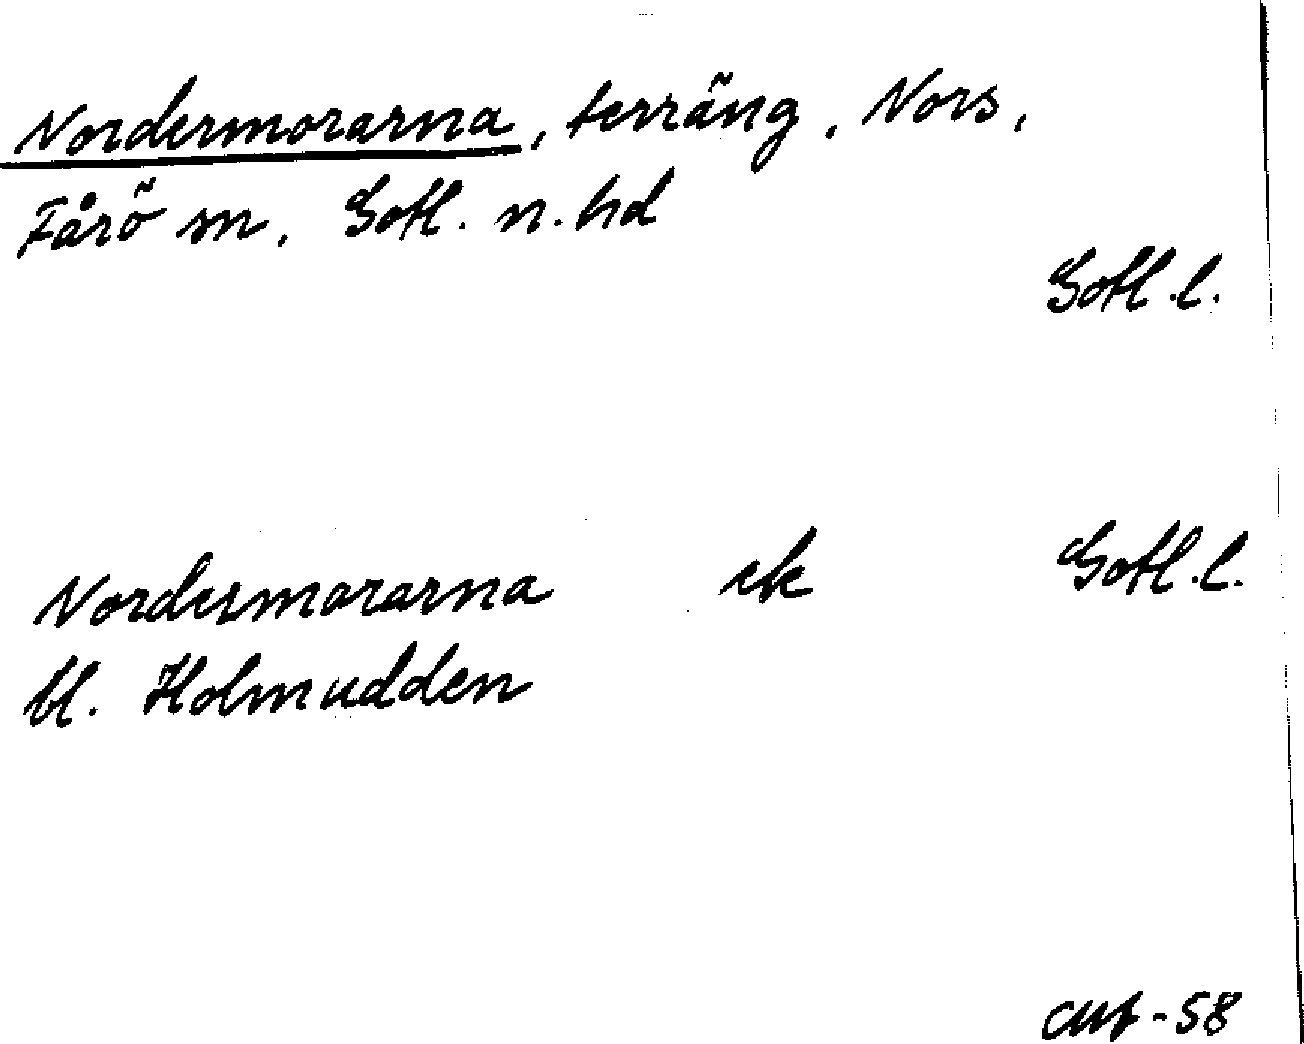 Nordermorarna, terräng, Nors,
Fårö sn, Gotl. n. hd
Gotl. l.
Nordermorarna ek Gotl. l.
bl. Holmudden
-58